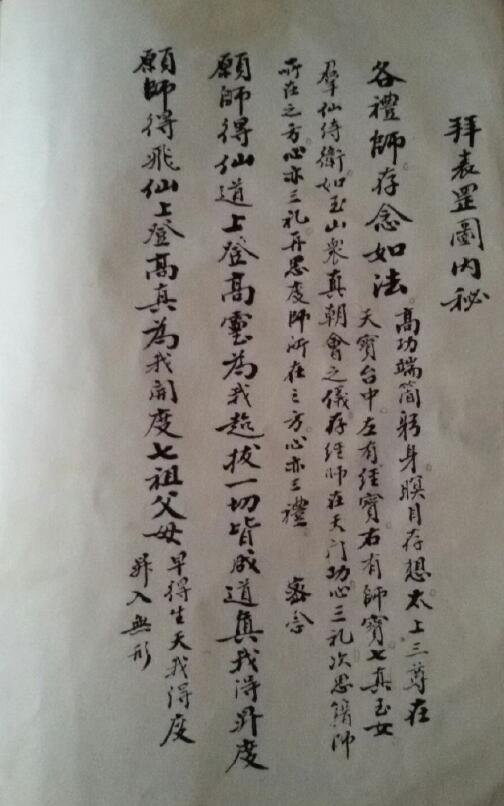 拜表罡圖內秘
各禮師存念如法 高功端簡躬身瞑目存想太上三尊在
天寶台中左有經寶右有師寶七真玉女
羣仙侍衛如玉山衆真朝會之儀存經師在天門功心三礼次思籍師
所在之方心亦三礼再思度師所在之方心亦三禮 密念
願師得仙道上登高靈為我超拔一切皆成道真我得昇度
願師得飛仙上登高真為我開度七祖父母 早得生天我得度
昇入無形